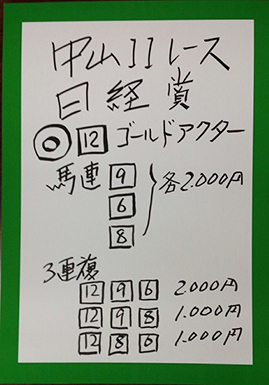 中山11レース
日経賞
◎ 12 ゴールドアクター
馬連 9
6
8
各2.000円
3連複
12 9 6 2.000円
12 9 8 1.000円
12 8 6 1.000円